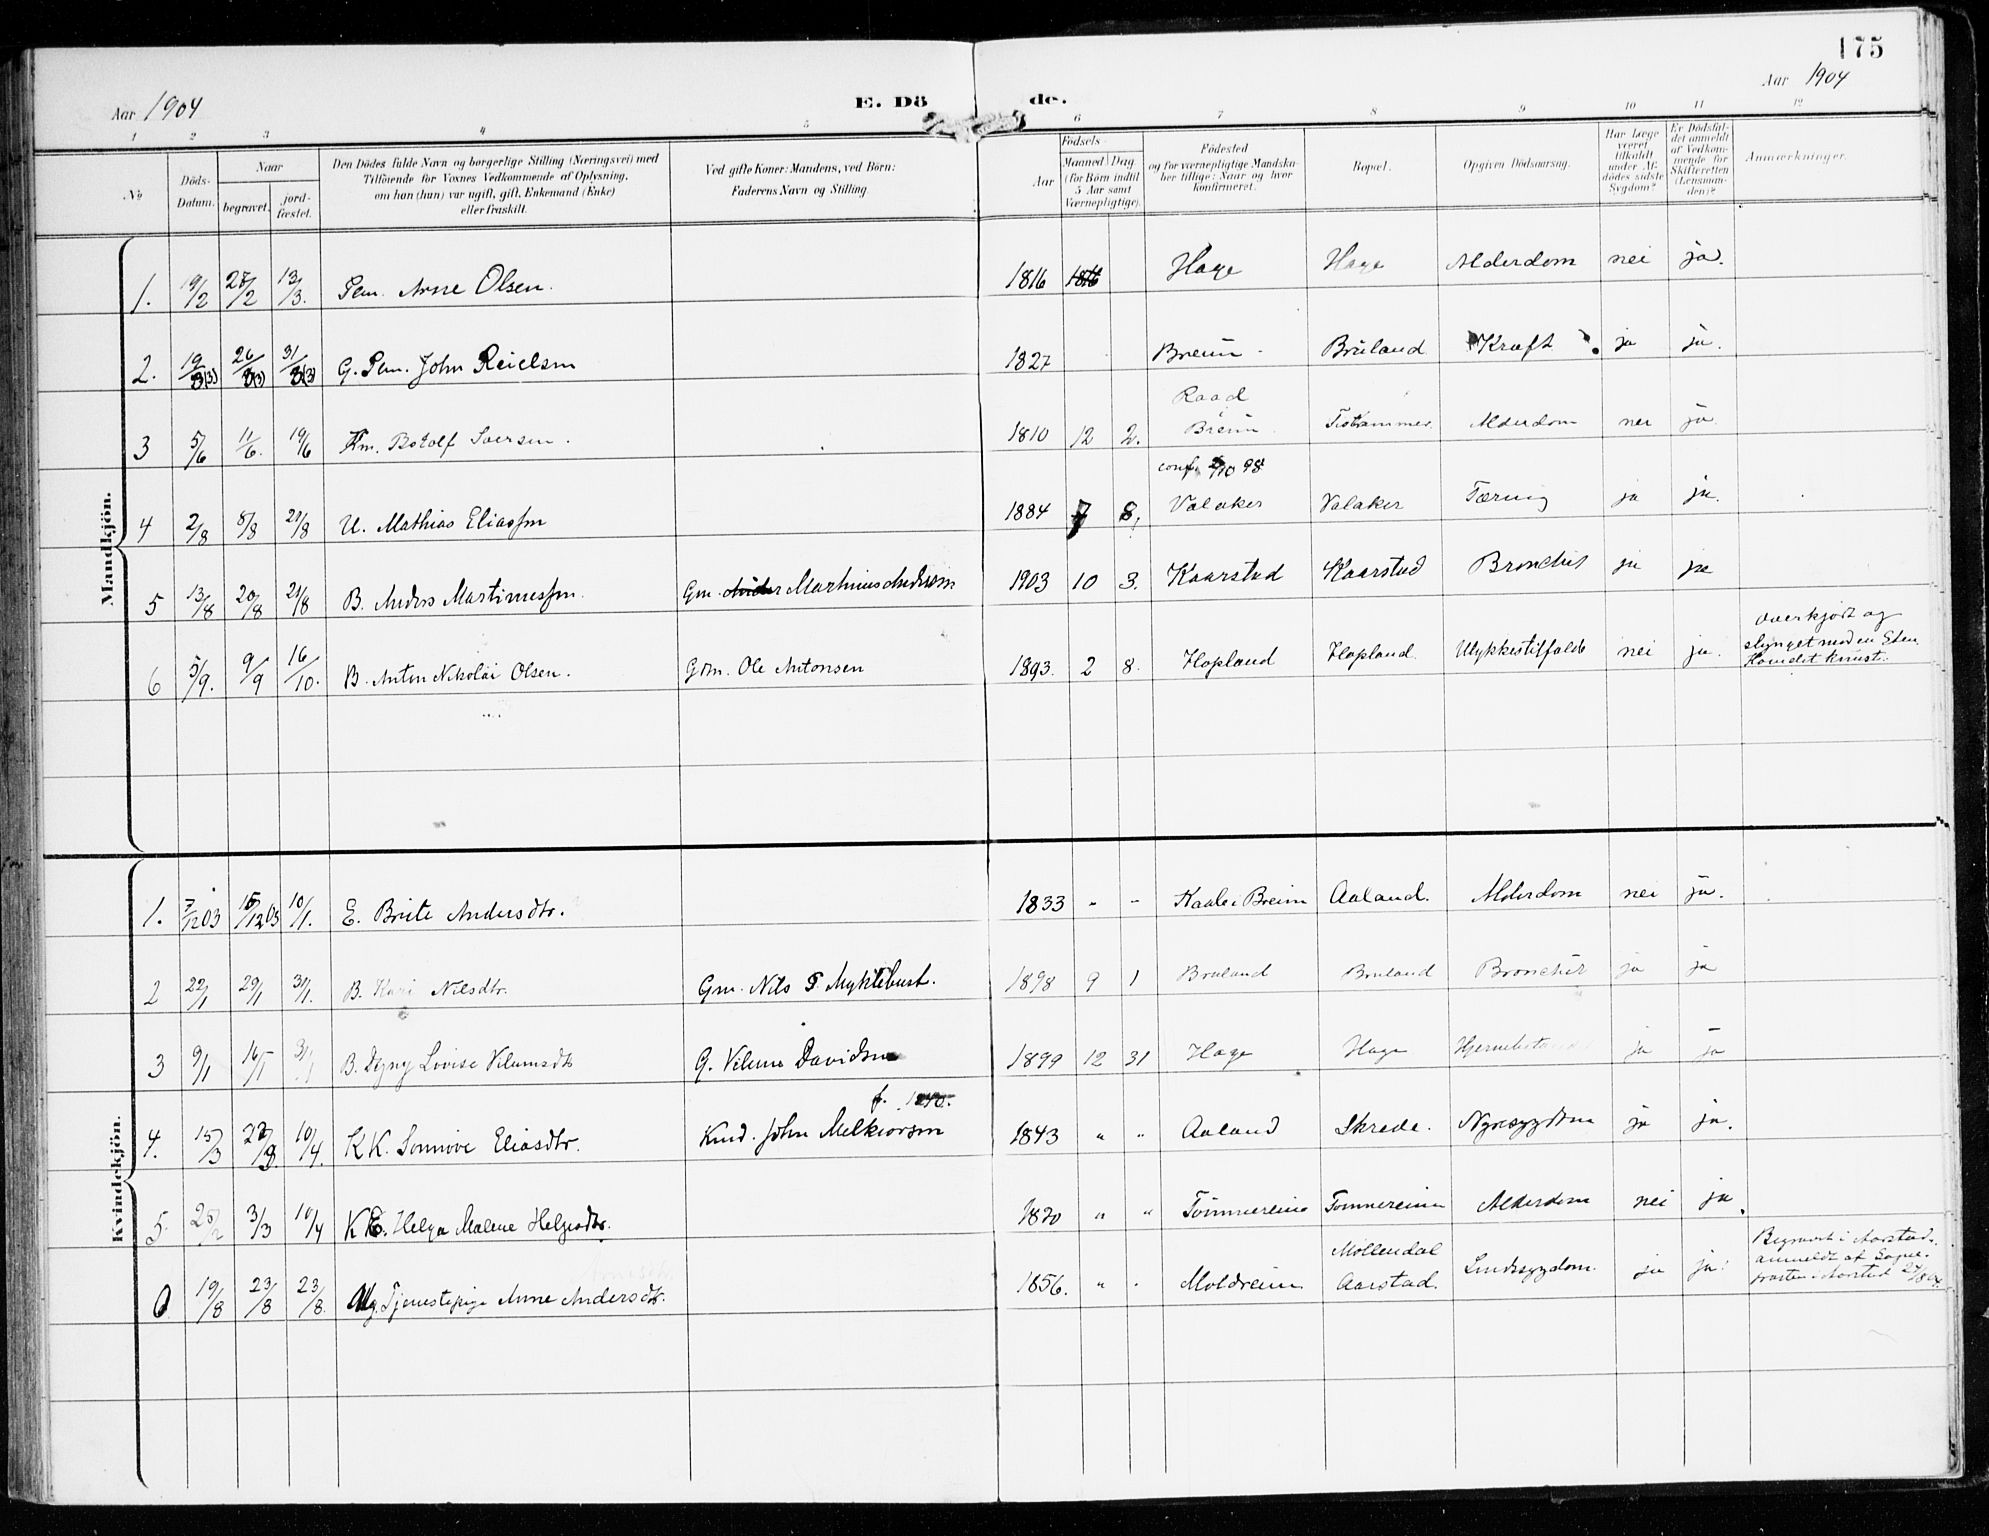 175
Aar 1904
E. Dö de.
Aar 1904
1 2 3 4 5 6 7 8 9 10 11 12
No
Döds-Datum.
Naar
begravet.
jord-fæstet.
Den Dödes fulde Navn og borgerlige Stilling (Næringsvei) med
Tilföiende for Voxnes Vedkommende af Oplysning,
om han (hun) var ugift, gift, Enkemand (Enke)
eller fraskilt.
Ved gifte Koner: Mandens, ved Börn:
Faderens Navn og Stilling
Födsels-
Aar
Maaned Dag
(for Börn indtil
5 Aar samt
Værnepligtige).
Födested
og for værnepligtige Mandskaber tillige: Naar og hvor
konfirmeret.
Bopæl.
Opgiven Dödsaarsag.
Har Læge
været
tilkaldt
under Afdödes sidste
Sygdom?
Er Dödsfaldet anmeldt
af Vedkommende for
Skifteretten
(Lensmanden)?
Anmærkninger.
Mandkjön.
1. 19/2 28/2 13/3. Pem. Arne Olsen. 1816 Hage Hage Alderdom nei ja.
2. 19/3(3) 26/3(3) 31/3(3) G. Pem. John Reielsen 1827 Breim Bruland Kræft ja ja.
3 5/6 11/6. 19/6 Km. Botolf Iversen. 1810 12 2. Raad Breim Alderdom nei ja
conf. 2/10 98
4 2/8 8/8 21/8 U. Mathias Eliassen 1884 7 8. Valaker Valaker Tæring ja ja.
5 13/8 20/8 21/8 B. Anders Martinussen. Gm. Martinus Andersen 1903 10 3. Kaarstad Kaarstad Bronchit ja ja
6 5/9. 9/9 16/10. B. Anton Nikolai Olsen. Gm. Ole Antonsen 1893. 2 8. Hopland Hopland. Ulykkestilfælde nei ja. overkjört og
slynget mod en Sten
Hovedet knust.
Kvindekjön.
1. 7/12 03 15/12 03 10/1. E. Brite Andersdtr. 1833 - - Kaale i Breim Aaland. Alderdom nei ja.
2 22/1 29/1 31/1. B. Kari Nilsdtr. Gm. Nils S. Myklebust. 1898 9 1 Bruland Bruland Bronchit ja ja
3 9/1 16/1 31/1 B. Dgny Lovise Vilumsdtr G. Vilum Davidsen 1899 12 31 Hage Hage ja ja
f. 1840.
4. 15/3 22/3. 10/4. KK. Sonnove Eliasdtr. Kmd. John Melkiorsen 1843 " " Aaland Skrede. Nyresygdom ja ja.
5. 25/2 3/3 10/4 KE. Helga Malene Helgesdtr. 1820 " " Tömmereim Tommereim Alderdom nei ja.
6 19/8 23/8 23/8. Ug. Tjenestepige Anne Andersdtr. 1856. " " Moldreim Möllendal
Aarstad. Lindsygdom. ja ja. Begravet i Aarstad.
anmeldt af Sogne-
præsten i Aarstad 24/8 04.